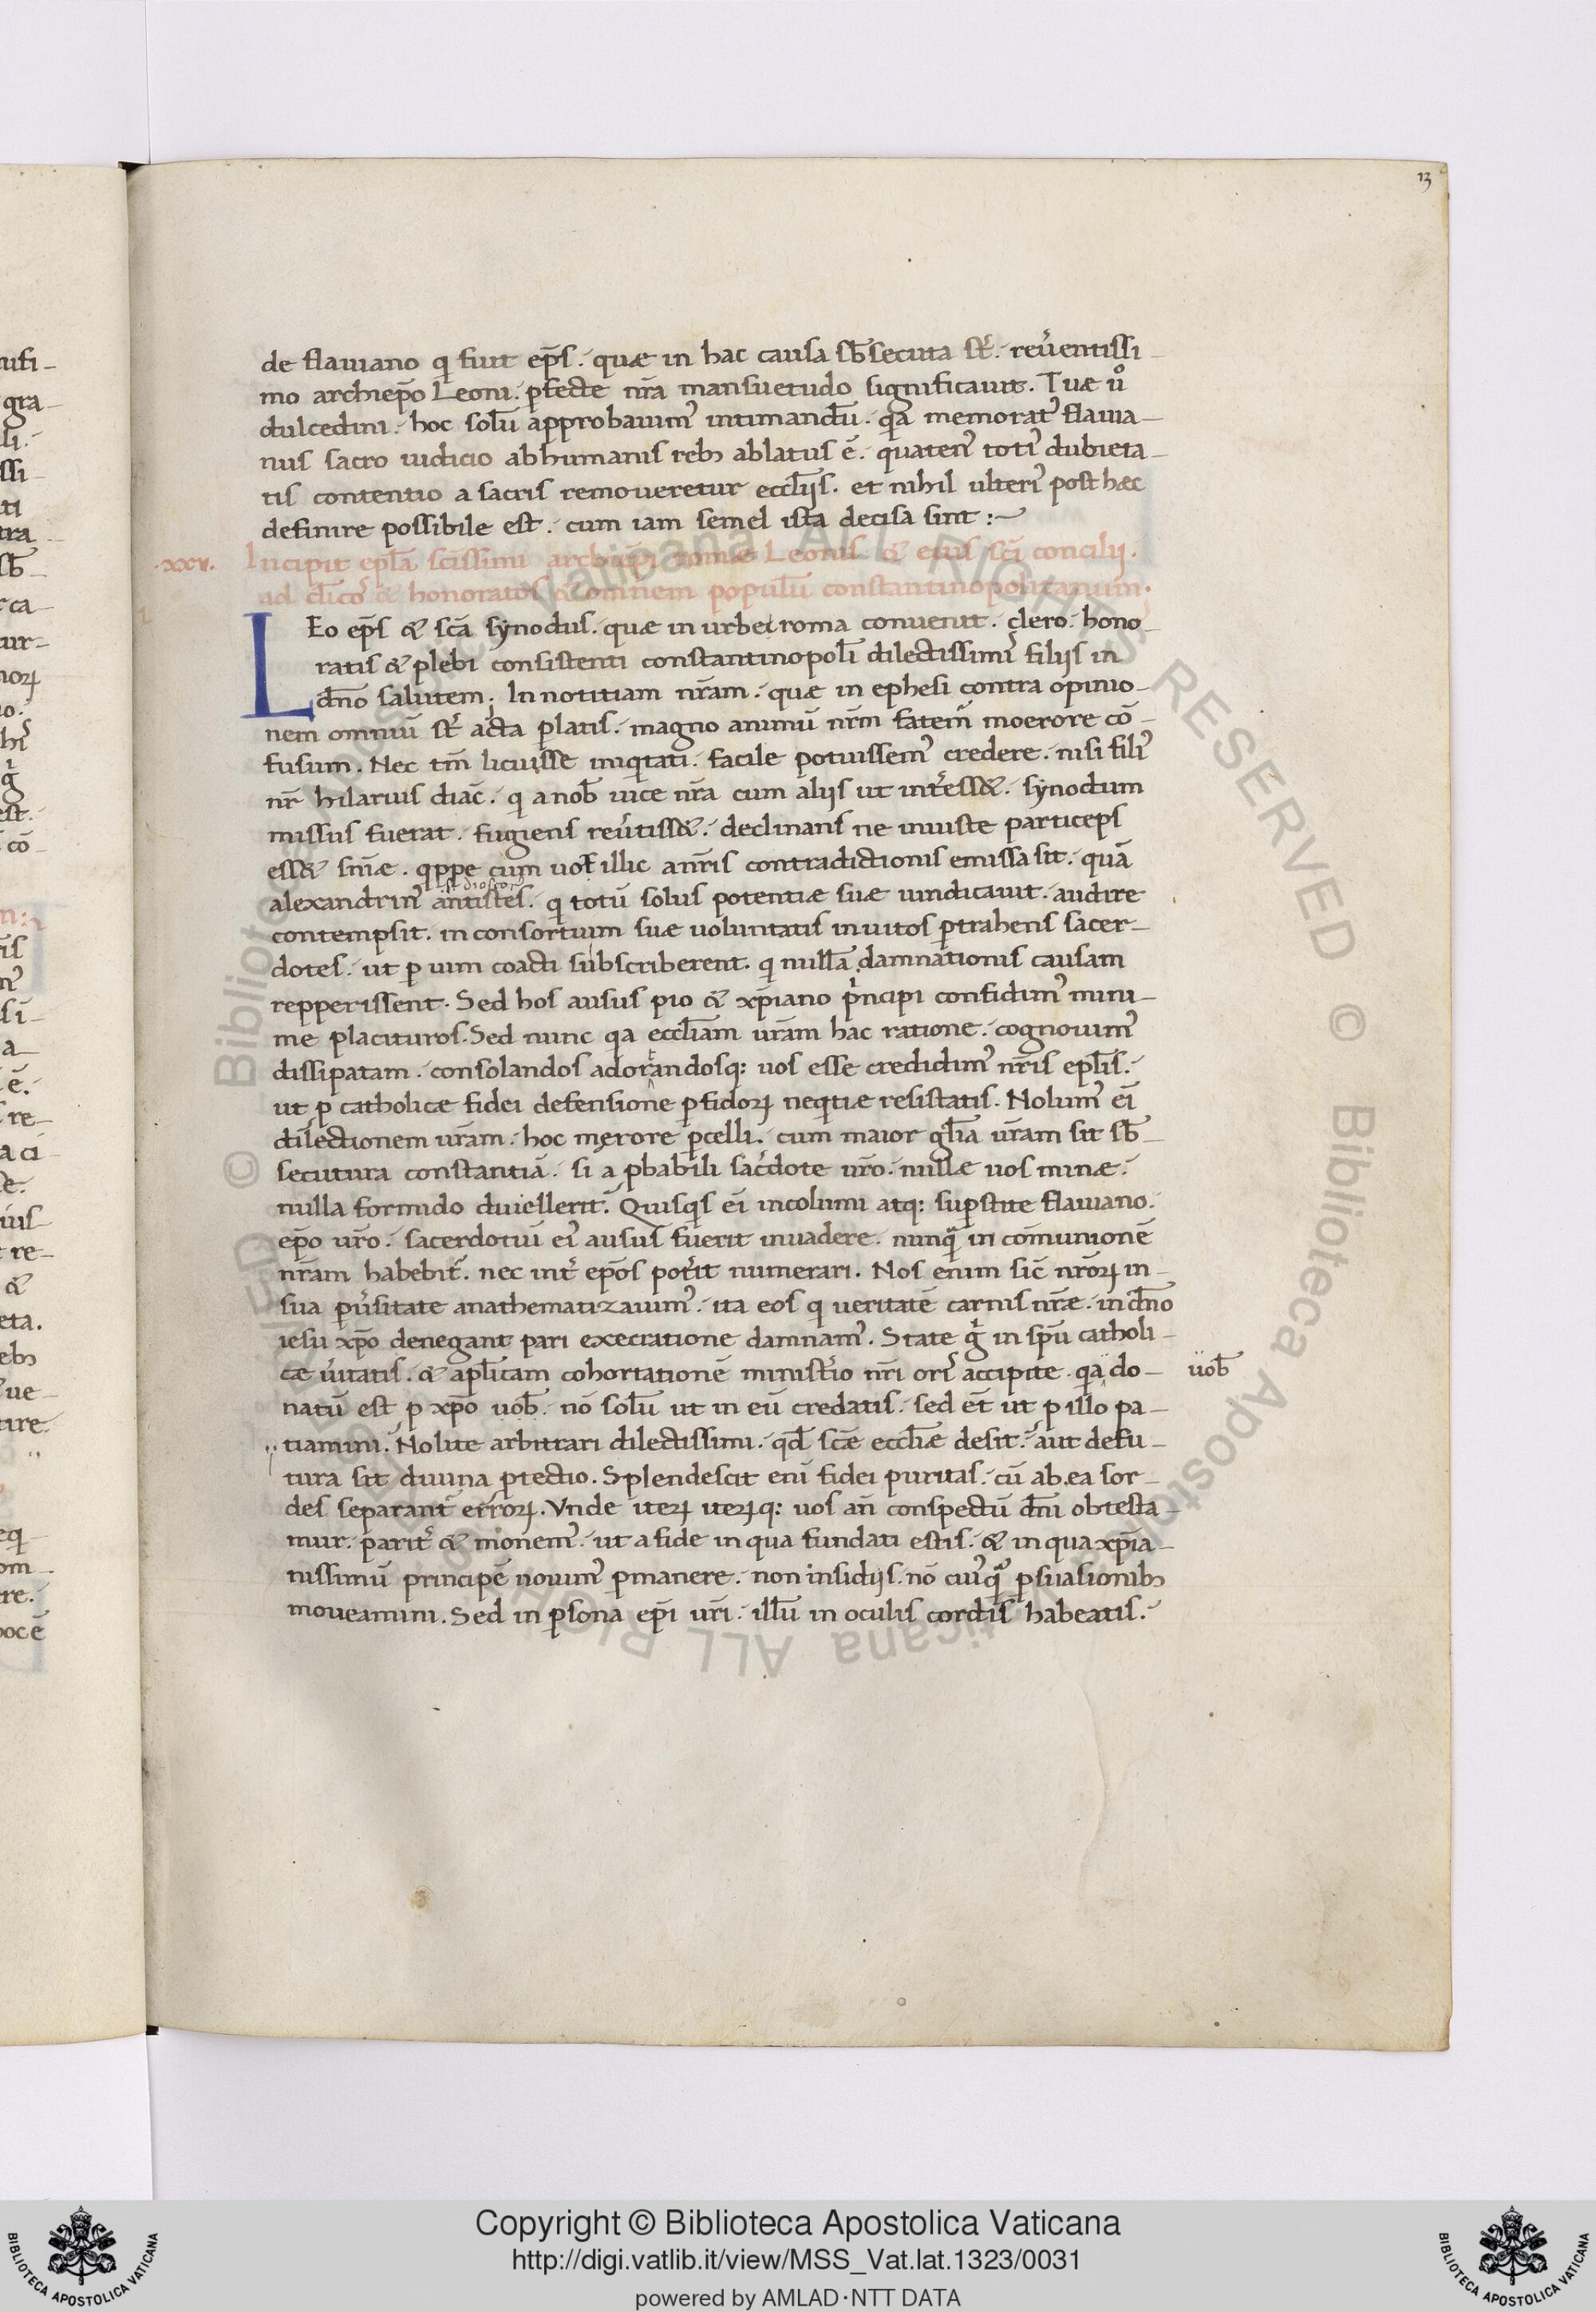 13
de flauiano q fuit ep̄s. quæ in hac causa sƀsecuta st̄. reu̓entissi-
mo archiep̄o Leoni. ꝑfecte nr̄a mansuetudo significauit. Tuæ ůo
dulcedini. hoc solū approbauim᾽ intimandū. qa memorat᾽ flauia-
nus sacro iudicio ab humanis rebꝫ ablatus ē. quaten᾽ toti᾽ dubieta-
tis contentio a sacris remoueretur eccl̄ijs. et nihil ulteri᾽ post hæc
definire possibile est. cum iam semel ista decisa sint :~
.xxv. Incipit epl̄a sc̄issimi archiep̄i romæ Leonis & eius sc̄i concilij.
ad cl̄icos & honoratos & omnem populū constantinopolitanum.
LEo ep̄s & sc̄a synodus. quæ in urbe roma conuenit. clero. hono-
ratis & plebi consistenti constantinopoli dilectissimis filijs in
dn̄o salutem. In notitiam nr̄am. quæ in ephesi contra opinio-
nem omniū st̄ acta ꝑlatis. magno animū nr̄m fatem̄ moerore cō-
fusum. Nec tm̄ licuisse iniqtati. facile potuissem᾽ credere. nisi fili᾽
nr̄ hilarius diac̄. q a noƀ uice nr̄a cum alijs ut int̓ess&. synodum
missus fuerat. fugiens reu̓tiss&. declinans ne iniuste particeps
ess& sn̄iæ. qppe cum uox illic a nr̄is contradictionis emissa sit. quā
.i. dioscor᾽
alexandrin᾽ antistes. q totū solus potentiæ suæ uindicauit. audire
contempsit. in consortium suæ uoluntatis inuitos ꝑtrahens sacer-
dotes. ut ꝑ uim coacti subscriberent. q nullā damnationis causam
repperissent. Sed hos ausus pio & xp̄iano pͥncipi confidim᾽ mini-
me placituros. Sed nunc qa eccl̄iam ur̄am hac ratione. cognouim᾽
dissipatam. consolandos adorandosq: uos esse credidim᾽ nr̄is epl̄is.
ut p catholicæ fidei defensione ꝑfidoꝝ neqtiæ resistatis. Nolum᾽ ei̅
dilectionem ur̄am. hoc męrore ꝑcelli. cum maior gl̄ia ur̄am sit sƀ-
secutura constantiā. si a ꝓbabili sac̓dote ur̄o. nullæ uos minæ.
nulla formido diuellerit. Quisqs ei̅ incolumi atq: suꝑstite flauiano.
ep̄o ur̄o. sacerdotiū ei᾽ ausus fuerit inuadere. nunqͣ in comunionē
nr̄am habebit̓. nec int̓ ep̄os pot̓it numerari. Nos enim sic̄ nr̄oꝝ in
sua ꝑu̓sitate anathematizauim᾽. ita eos q ueritatē carnis nr̄æ. in dn̄o
iesu xp̄o denegant pari execratione damnam᾽. State gͦ in sp̄u catholi-
cæ u̓itatis. & apl̄icam cohortationē minist̓io nr̄i oris accipite. qa do- uoƀ
natū est p xp̄o uoƀ. nō solū ut in eū credatis. sed et̄ ut p illo pa-
tiamini. Nolite arbitrari dilectissimi. qd̄ sc̄æ eccl̄iæ desit. aut defu-
tura sit diuina ꝓtectio. Splendescit eni̅ fidei puritas. cū ab ea sor-
des separant̓ erroꝝ. Vnde iteꝝ iteꝝq: uos an̄ conspectū dn̄i obtesta-
mur. parit̓ & monem᾽. ut a fide in qua fundati estis. & in qua xp̄ia-
nissimū principē nouim᾽ ꝑmanere. non insidijs. nō cui᾽qͣ ꝑsuasionibꝫ
moueamini. Sed in ꝑsona ep̄i ur̄i. illū in oculis cordis habeatis.
Copyright © Biblioteca Apostolica Vaticana
http://digi.vatlib.it/view/MSS_Vat.lat.1323/0031
powered by AMLAD·NTT DATA